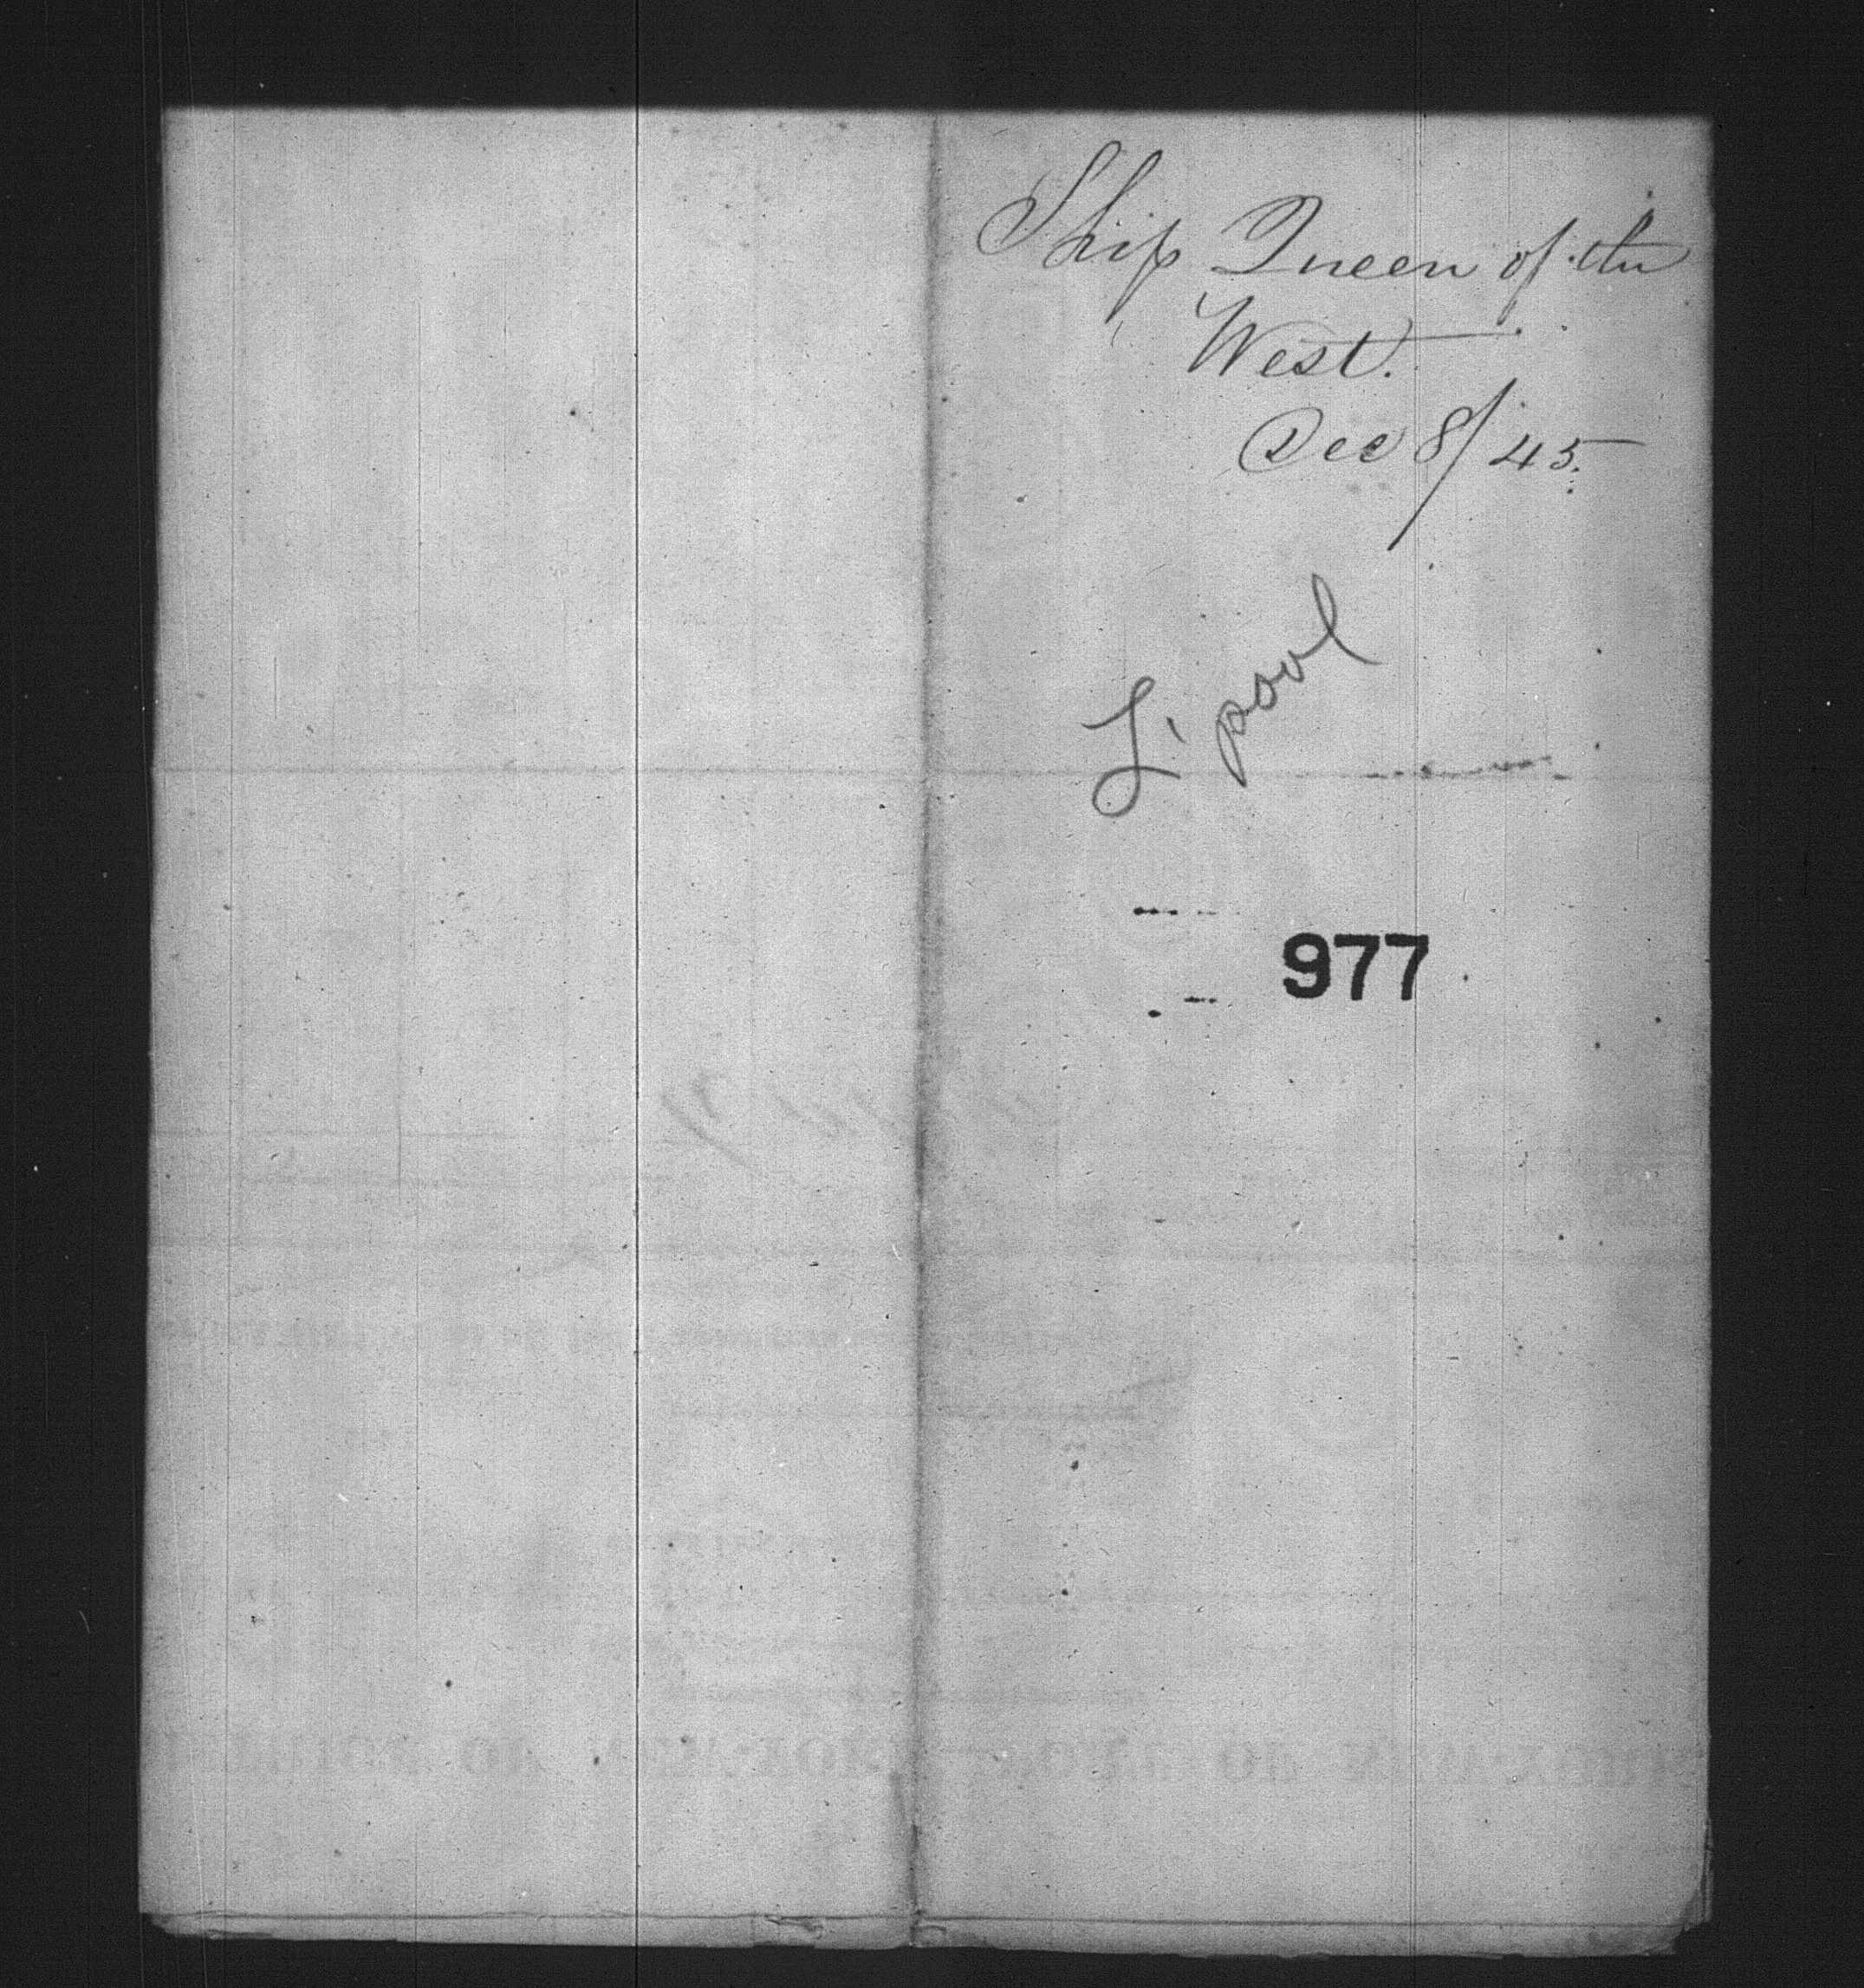 Ship Queen of the
West.
Dec 8/45.
L'pool
977